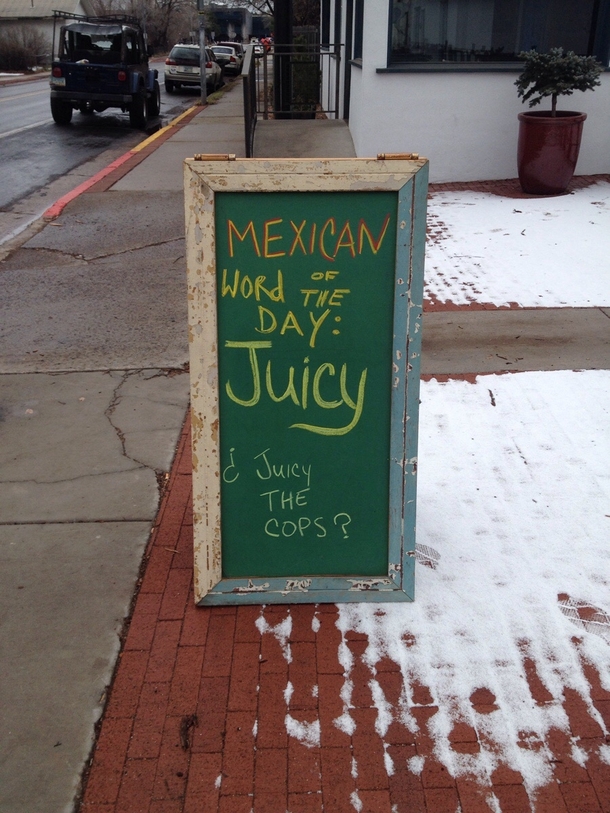 MEXICAN
WORD OF
THE
DAY:
Juicy
¿ Juicy
THE
COPS?